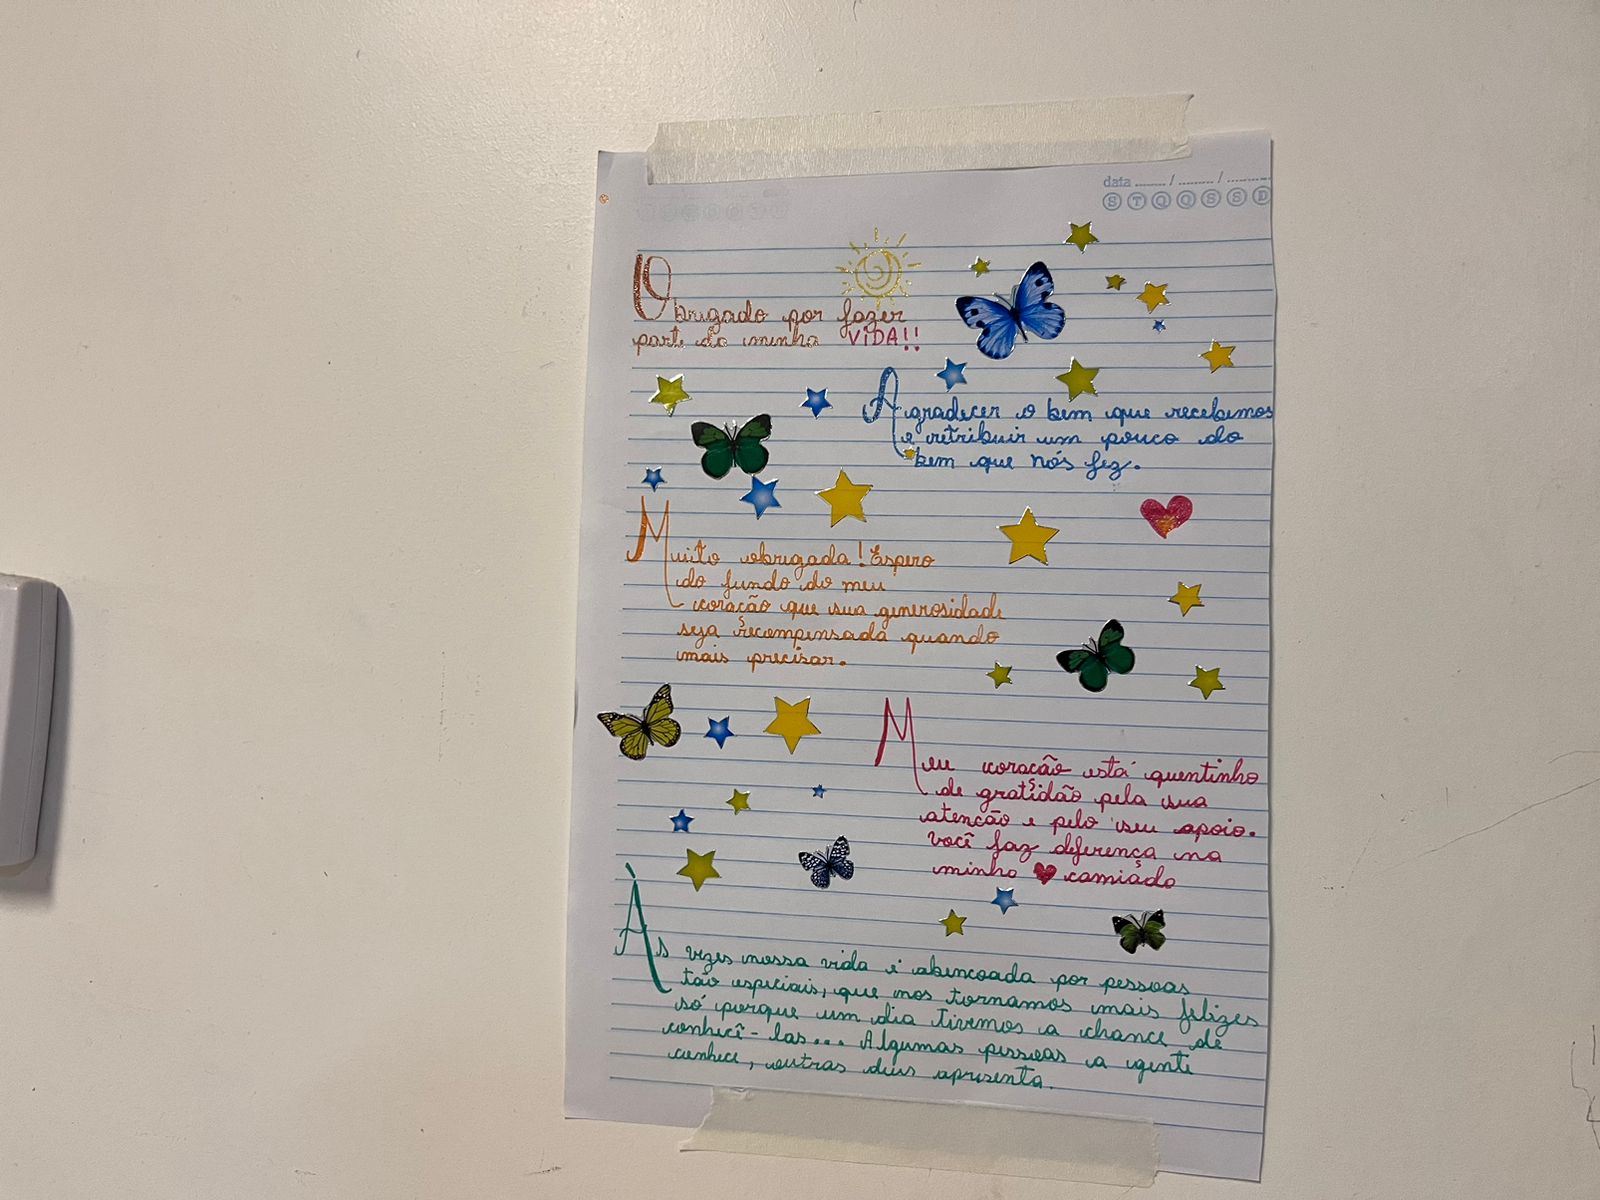 data ____ / ____ / ____
S T Q Q S S D
Obrigado por fazer
parte da minha VIDA!!
Agradecer o bem que recebemos
e retribuir um pouco do
bem que nós fez.
Muito obrigada! Espero
do fundo do meu
coração que sua generosidade
seja recompensada quando
mais precisar.
Meu coração está quentinho
de gratidão pela sua
atenção e pelo seu apoio.
você faz diferença na
minha camiada
Às vezes nossa vida é abencoada por pessoas
tão especiais, que nos tornamos mais felizes
só porque um dia tivemos a chance de
conhecê-las... Algumas pessoas a gente
conhece, outras deus apresenta.